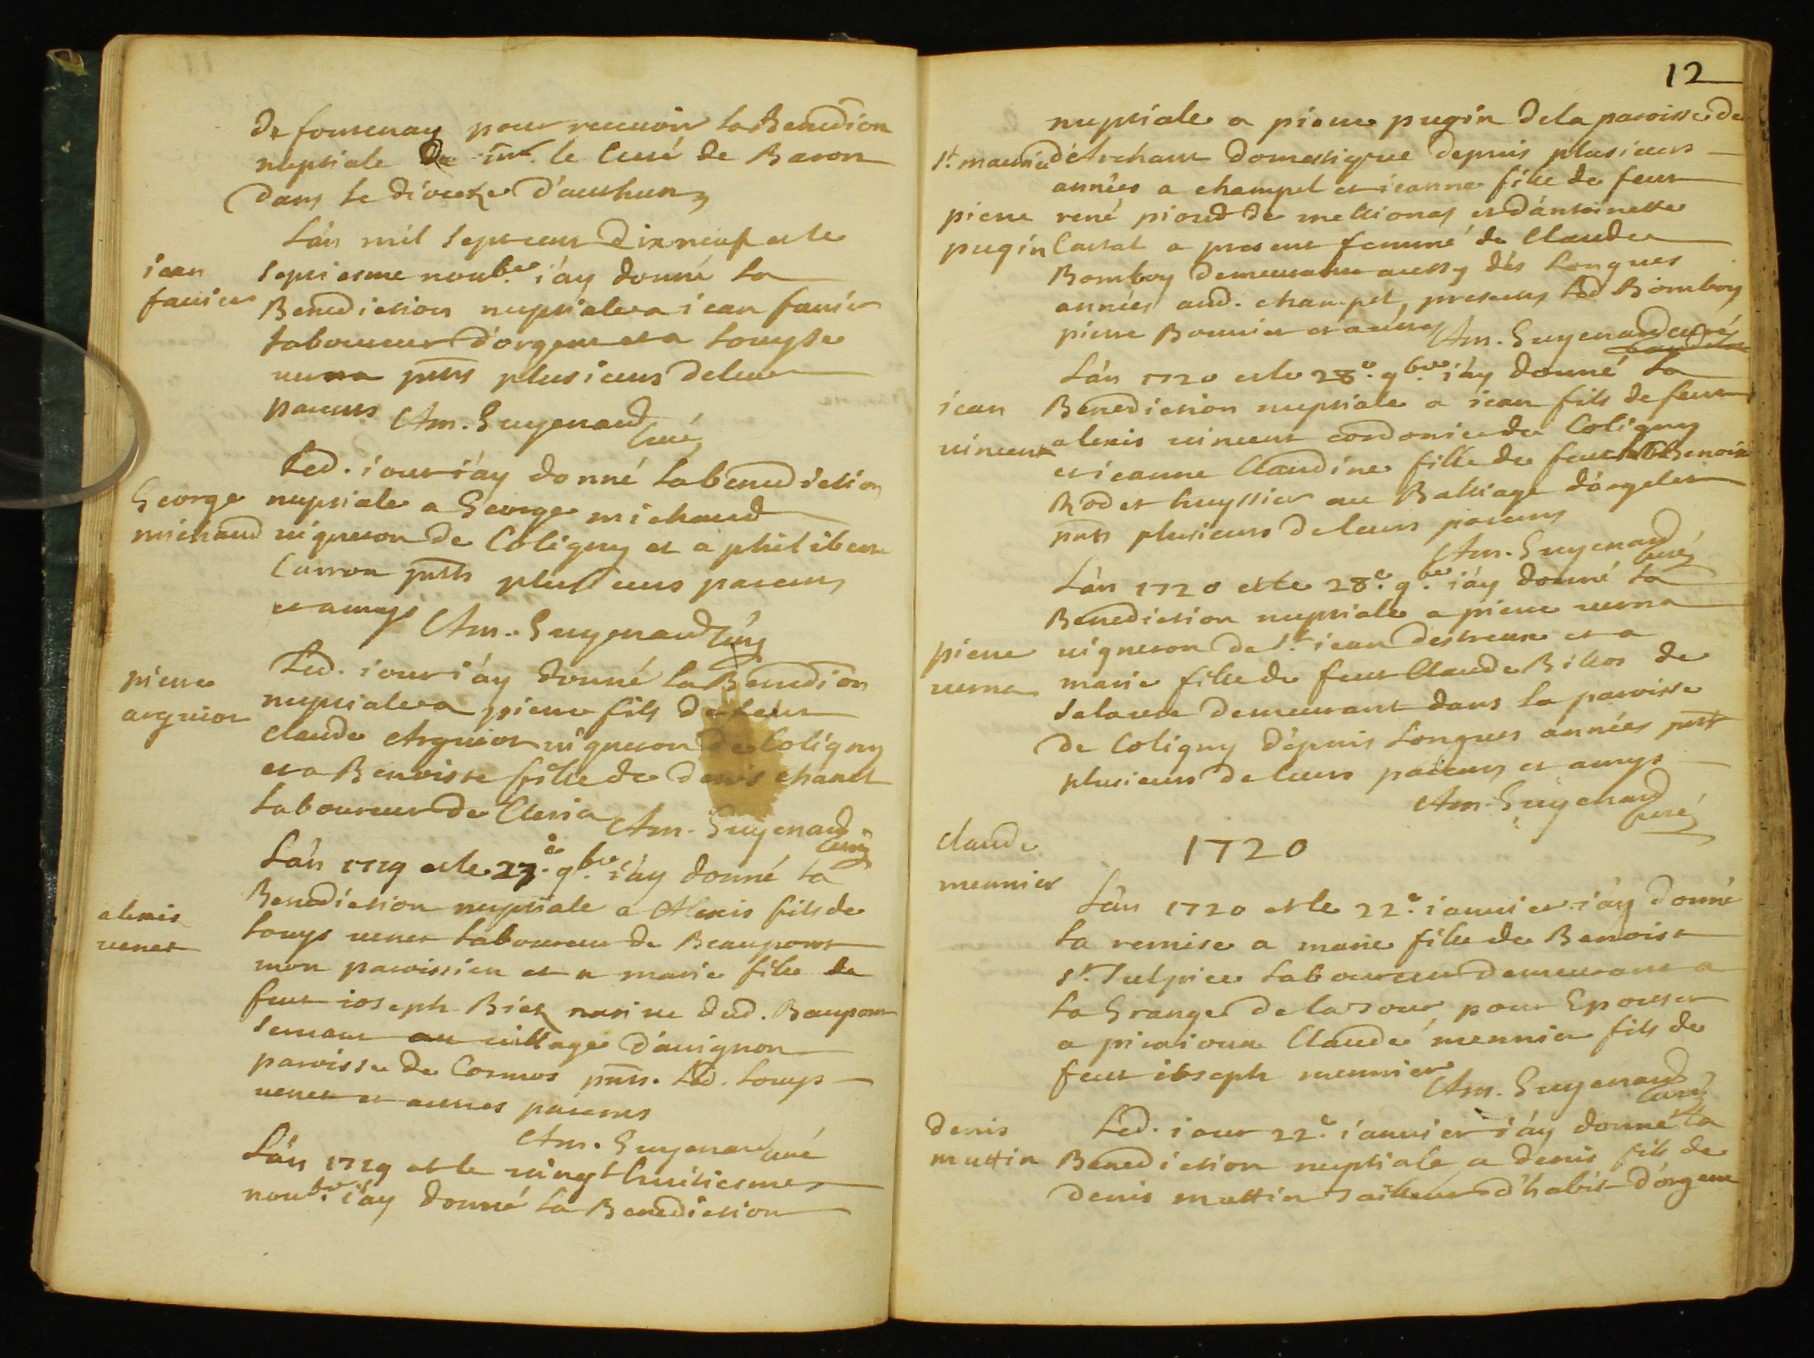 de fontenay pour recevoir la Benedion
nuptiale De mr. le Curé de Baron
dans le diocese d'authun
L'an mil sept cent dix neuf et le
septiesme novbre. i'ay donné la
jean
favier
Benediction nuptiale a jean favier
laboureur d'orgent et a Louyse
verna pnts plusieurs de leur
parents Am. Guyenard
Curé
Led. jour i'ay donné la benediction
George
michaud
nuptiale a George michaud
vigneron de Coligny et a philiberte
Carron pnts plusieurs parents
et amys Am. Guyenard Curé
pierre
arguiot
Led. jour i'ay donné la Benedion
nuptiale a pierre fils de feut
claude Arguiot vigneron de Coligny
et a Benoiste fille de denis chanel
laboureur de Cleria Am. Guyenard
Curé
L'an 1719 et le 27e. 9bre. i'ay donné la
alexis
venet
Benediction nuptiale a Alexis fils de
Louys venet laboureur de Beaupont
mon paroissien et a marie fille de
feut joseph Biet dud. Baupont
servant au village d'avignon
paroisse de Cormos pnts. Led. Louys
venet et autres parents
Am. Guyenard Curé
L'an 1719 et le vingt huitiesme
novbre. i'ay donné la Benediction
12
nuptiale a pierre pugin de la paroisse de
st. maurice d'Echant domestique depuis plusieurs
années a champel et jeanne fille de feut
pierre
pugin
rené piond de mellionas et d'antoinette
Castal a present femme de Claude
Bomboy demeurante aussy dés longues
années aud. champel, presents led Bomboy
pierre Bonnier et autres Am. Guyenard curé
L'an 1720 et le 28e. 9bre. i'ay donné la
jean
vincent
Benediction nuptiale a jean fils de feut
alexis vincent cordonier de Coligny
et jeanne Claudine fille de feut Benoist
Rodet huyssier au Balliage d'orgelet
pnts plusieurs de leurs parents
Am. Guyenard
Curé
L'an 1720 et le 28e. 9bre. i'ay donné la
Benediction nuptiale a pierre verna
pierre
verna
vigneron de st. jean destreux et a
marie fille de feut Claude Billos de
demeurant dans la paroisse
de Coligny depuis longues années pnts
plusieurs de leurs parents et amys
Am. Guyenard
Curé
claude
meunier
1720
L'an 1720 et le 22e. janvier i'ay donné
la remise a marie fille de Benoist
st. Sulpice laboureur demeurant a
la Grange de la tour pour Epouser
a Claude meunier fils de
feut joseph meunier Am. Guyenard
Curé
denis
muttin
Led. jour 22e. janvier i'ay donné la
Benediction nuptiale a denis fils de
denis muttin tailleur d'habit d'orgent